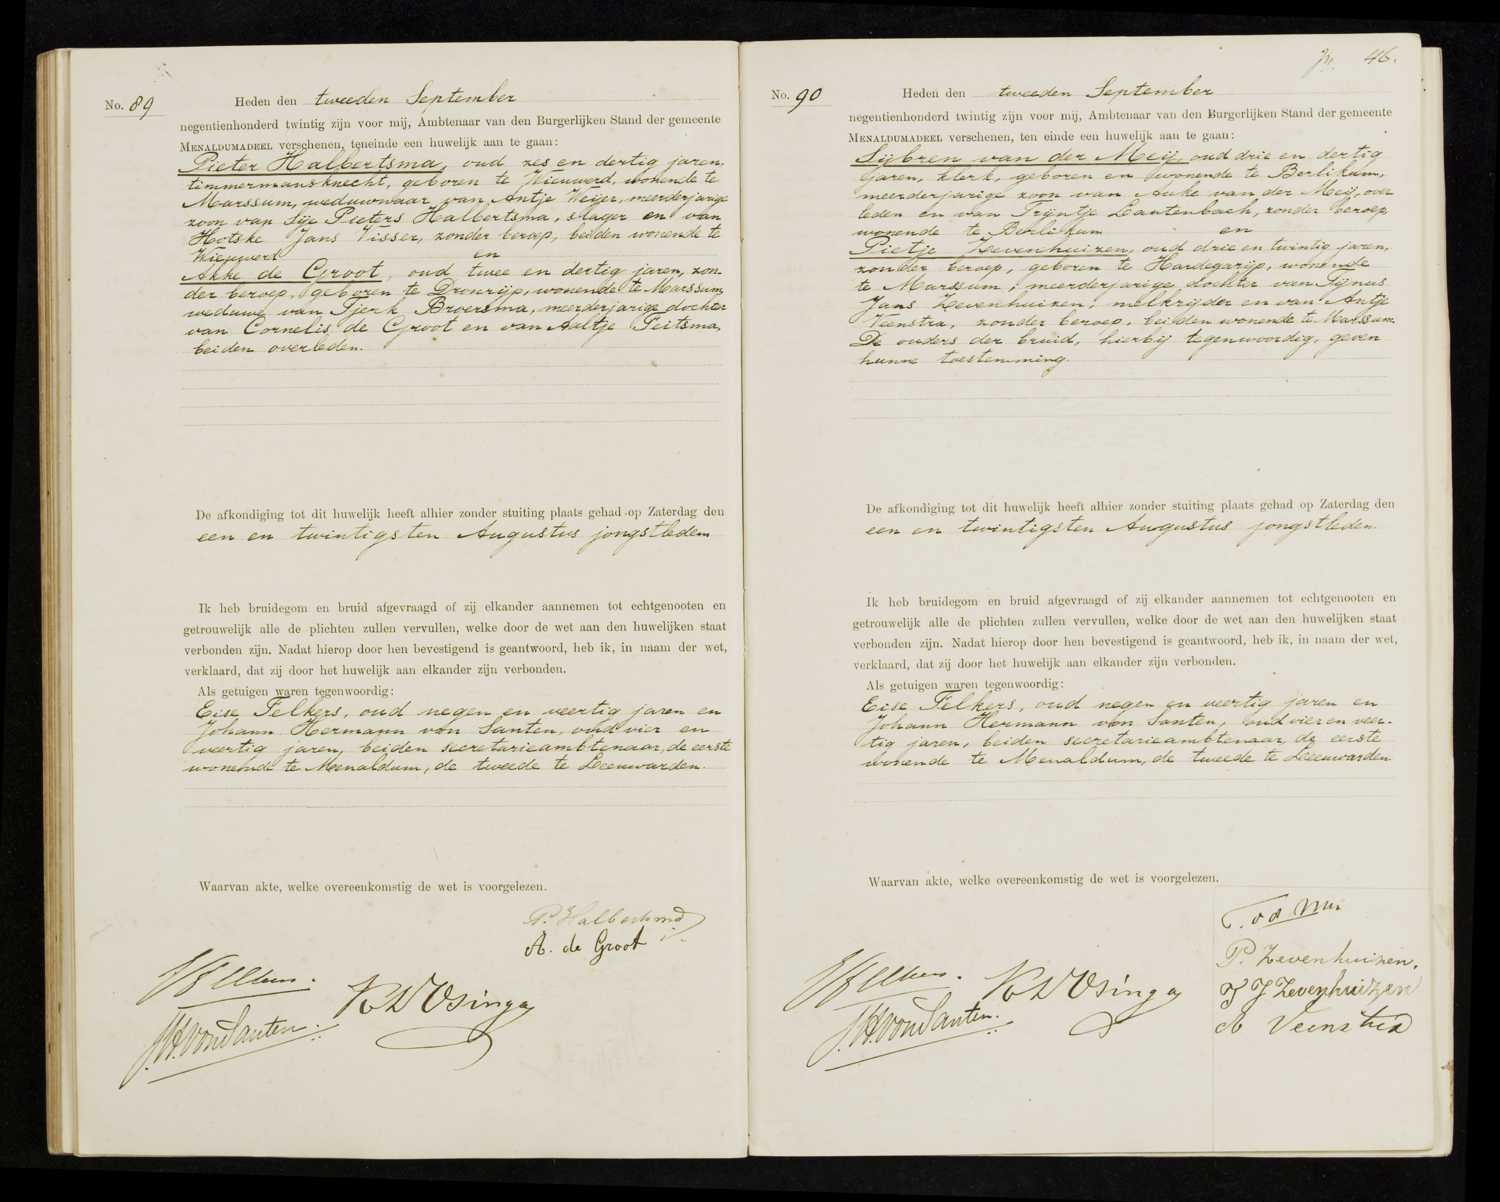 No. 89 Heden den tweeden September
negentienhonderd twintig zijn voor mij, Ambtenaar van den Burgerlijken Stand der gemeente
MENALDUMADEEL verschenen, teneinde een huwelijk aan te gaan:
Pieter Halbertsma, oud zes en dertig jaren,
timmermansknecht, geboren te Wieuwerd, wonende te
Marssum, weduwnaar van Antje Weijer, meerderjarige
zoon van Sije Pieters Halbertsma, slager en van
Hotske Jans Visser, zonder beroep, beiden wonende te
Wieuwerd en
Akke de Groot, oud twee en dertig jaren, zon-
der beroep, geboren te Dronrijp, wonende te Marssum,
weduwe van Tjerk Broersma, meerderjarige dochter
van Cornelis de Groot en van Aaltje Feitsma,
beiden overleden.
De afkondiging tot dit huwelijk heeft alhier zonder stuiting plaats gehad op Zaterdag den
een en twintigsten Augustus jongstleden
Ik heb bruidegom en bruid afgevraagd of zij elkander aannemen tot echtgenooten en
getrouwelijk alle de plichten zullen vervullen, welke door de wet aan den huwelijken staat
verbonden zijn. Nadat hierop door hen bevestigend is geantwoord, heb ik, in naam der wet,
verklaard, dat zij door het huwelijk aan elkander zijn verbonden.
Als getuigen waren tegenwoordig:
Eise Felkers, oud negen en veertig jaren en
Johann Hermann von Santen, oud vier en
veertig jaren, beiden secretarieambtenaar, de eerste
wonende te Menaldum, de tweede te Leeuwarden.
Waarvan akte, welke overeenkomstig de wet is voorgelezen.
P. Halbertsma
A. de Groot
JHvonSanten.
46.
No. 90 Heden den tweeden September
negentienhonderd twintig zijn voor mij, Ambtenaar van den Burgerlijken Stand der gemeente
MENALDUMADEEL verschenen, ten einde een huwelijk aan te gaan:
Sijbren van der Meij, oud drie en dertig
jaren, klerk, geboren en wonende te Berlikum,
meerderjarige zoon van Auke van der Meij, over-
leden en van Trijntje Lautenbach, zonder beroep,
wonende te Berlikum en
Pietje Zevenhuizen, oud drie en twintig jaren,
zonder beroep, geboren te Hardegarijp, wonende
te Marssum, meerderjarige dochter van Tijnus
Jans Zevenhuizen, melkrijder en van Antje
Veenstra, zonder beroep, beiden wonende te Marssum.
De ouders der bruid, hierbij tegenwoordig, geven
hunne toestemming.
De afkondiging tot dit huwelijk heeft alhier zonder stuiting plaats gehad op Zaterdag den
een en twintigsten Augustus jongstleden
Ik heb bruidegom en bruid afgevraagd of zij elkander aannemen tot echtgenooten en
getrouwelijk alle de plichten zullen vervullen, welke door de wet aan den huwelijken staat
verbonden zijn. Nadat hierop door hen bevestigend is geantwoord, heb ik, in naam der wet,
verklaard, dat zij door het huwelijk aan elkander zijn verbonden.
Als getuigen waren tegenwoordig:
Eise Felkers, oud negen en veertig jaren en
Johann Hermann von Santen, oud vier en veer-
tig jaren, beiden secretarieambtenaar, de eerste
wonende te Menaldum, de tweede te Leeuwarden
Waarvan akte, welke overeenkomstig de wet is voorgelezen.
P. Zevenhuizen.
T J Zevenhuizen
A Veenstra
JHvonSanten.